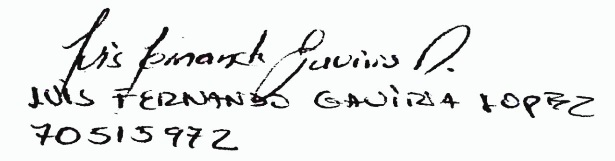 Luis Fernando Gaviria L.
LUIS FERNANDO GAVIRIA LOPEZ
70515972